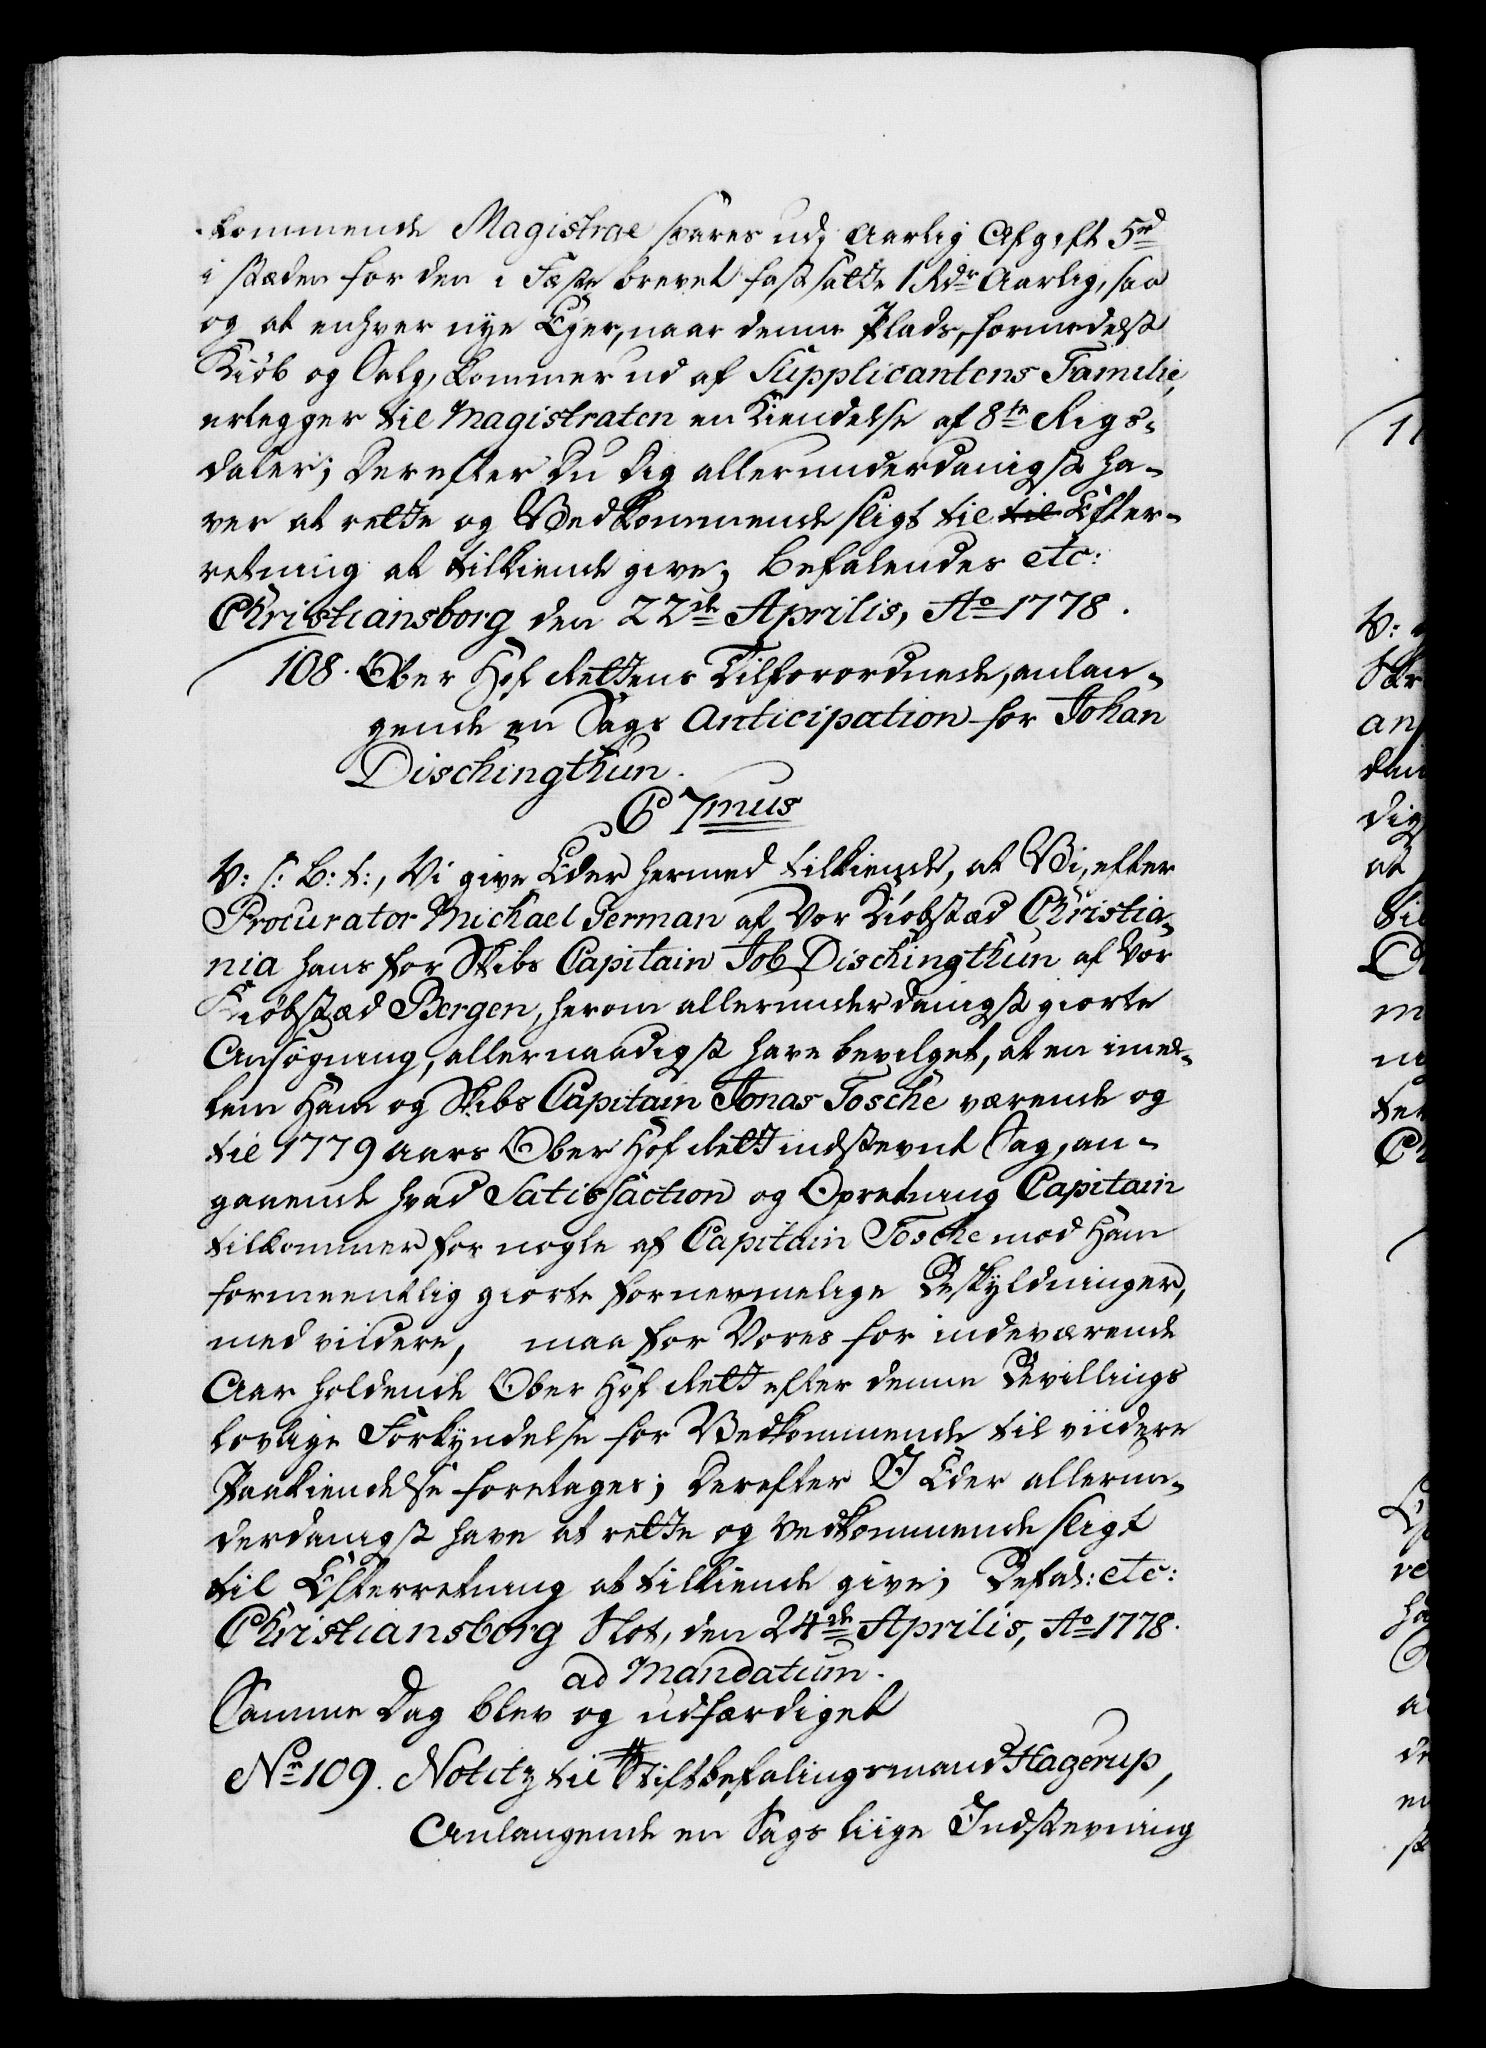 kommende Magistrae svares udj aarlig Afgift 5 rd
i stæden for den i Fæstebrevet fastsatte 1 Rdr Aarlig, saa
og at enhver nye Ejer, naar denne Plads, formedelst
Kiøb og Salg, kommer ud af Supplicantens Familie,
erlegger til Magistraten en Kiendelse af 8te Rigs-
daler; Derefter Du dig allerunderdanigst ha-
ver at rette og Vedkommende sligt til til Efter-
retning at tilkiende give; Befalendes etc:
Christiansborg den 22de Aprilis, Ao 1778.
108. Ober Hof Rettens Tilforordnede, anlan-
gende en Sags Anticipation for Johan
Dischingthun.
C 7mus
V: s: B: t:, Vi give Eder hermed tilkiende, at Vi, efter
Procurator Michael German af Vor Kiøbstæd Christia-
nia hans for Skibs Capitain Job Dischingthun af Vor
Kiøbstæd Bergen, herom allerunderdanigst giorte
Ansøgning, allernaadigst have bevilget, at en imel-
lem Ham og Skibs Capitain Jonas Tosche værende og
til 1779 aars Ober Hof Rett indstevnt Sag, an-
gaaende hvad Satisfaction og Opretning Capitain
tilkommer for nogle af Capitain Tosche mod Ham
formeentlig giorte fornermelige Beskyldninger,
med viidere, maa for Vores for indeværende
Aar holdende Ober Hof Rett efter denne Bevillings
lovlige Forkyndelse for Vedkommende til viidere
Paakiendelse foretages; Derefter I Eder allerun-
derdanigst have at rette og Vedkommende sligt
til Efterretning at tilkiende give; Befal: etc:
Christiansborg Slot, den 24de Aprilis, Ao 1778.
ad Mandatum.
Samme Dag blev og udfærdiget
No 109. Notitz til Stiftbefalingsmand Hagerup,
Anlangende en Sags liige Indstevning